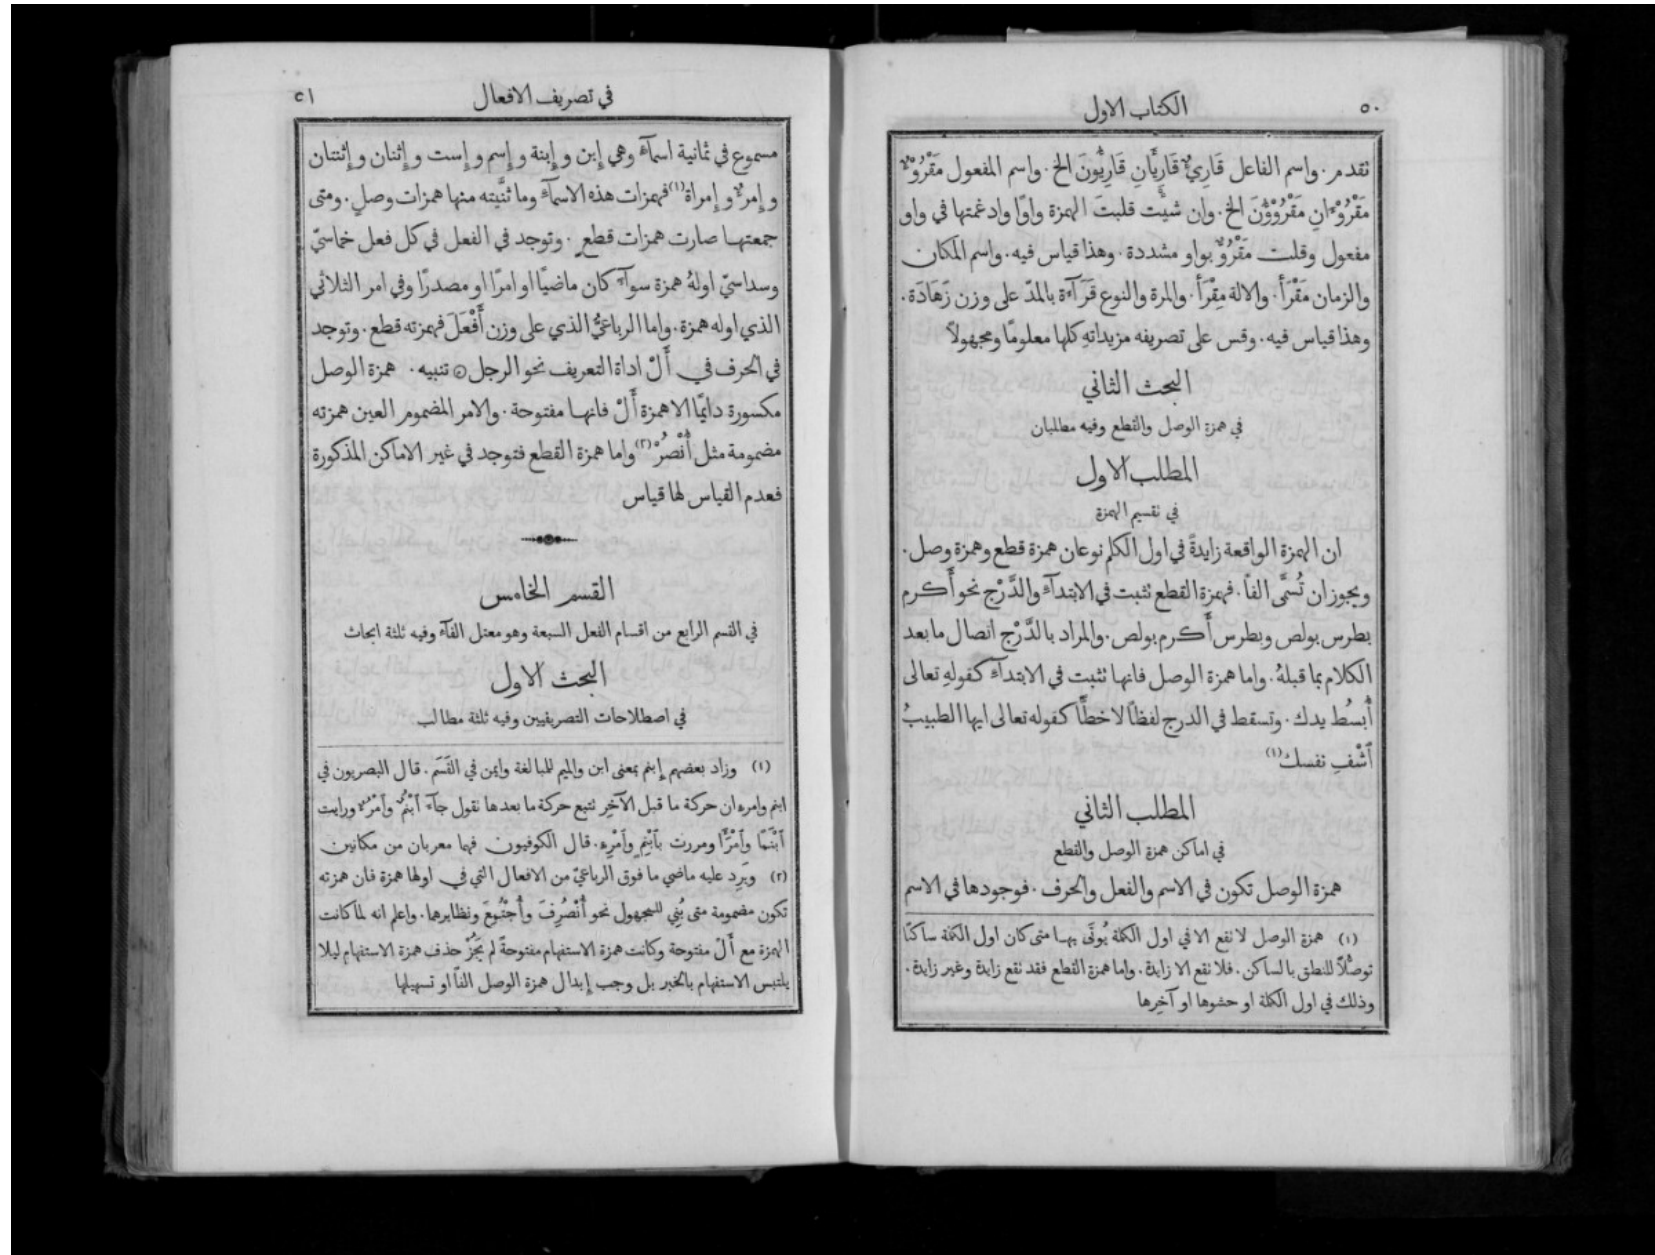 الكتاب الاول
٥٠
تقدم. واسم الفاعل قَارِئٌ قَارِئَانِ قَارِئُونَ الخ. واسم المفعول مَقْرُوْءٌ
مَقْرُوْءَانِ مَقْرُوْؤُنَ الخ. وان شيَت قلبتَ الهمزة واوًا وادغمتها في واو
مفعول وقلت مَقْرُوٌّ بواو مشددة. وهذا قياس فيه. واسم المكان
والزمان مَقْرَأ. والالة مِقْرَأ. والمرة والنوع قَرَآءَة بالمدّ على وزن زَهَادَة.
وهذا قياس فيه. وقس على تصريفه مزيداتهِ كلها معلومًا ومجهولاً
البحث الثاني
في همزة الوصل والقطع وفيه مطلبان
المطلب الاول
في تقسيم الهمزة
ان الهمزة الواقعة زايدةً في اول الكلم نوعان همزة قطع وهمزة وصل.
ويجوز ان تُسمَّى الفاً. فهمزة القطع تثبت في الابتدآء والدَّرْج نحو أَكرم
بطرس بولص وبطرس أَكرم بولص. والمراد بالدَّرْج اتصال ما بعد
الكلام بما قبلهُ. واما همزة الوصل فانها تثبت في الابتدآء كقولهِ تعالى
أُبسُط يدك. وتسقط في الدرج لفظًا لا خطًّا كقوله تعالى ايها الطبيبُ
ٱشْفِ نفسك (١)
المطلب الثاني
في اماكن همزة الوصل والقطع
همزة الوصل تكون في الاسم والفعل والحرف. فوجودها في الاسم
(١) همزة الوصل لا تقع الا في اول الكلمة يُوتَى بهـا متى كان اول الكلمة ساكنًا
توصُّلاً للنطق بالساكن. فلا تقع الا زايدة. واما همزة القطع فقد تقع زايدة وغير زايدة.
وذلك في اول الكلمة او حشوها او آخِرها
في تصريف الافعال
٥١
مسموع في ثمانية اسمآء وهي إِبن و إِبنة و إِسم و إِست و إِثنان و إِثنتان
و إِمرءٌ و إِمراة (١) فهمزات هذه الاسمآء وما ثنَّيته منها همزات وصلٍ. ومتى
جمعتهـا صارت همزات قطعٍ. وتوجد في الفعل في كل فعل خماسيّ
وسداسيّ اولهُ همزة سوآء كان ماضيًا او امرًا او مصدرًا وفي امر الثلاثي
الذي اوله همزة. واما الرباعيُّ الذي على وزن أَفْعَلَ فهمزته قطع. وتوجد
في الحرف في أَلْ اداة التعريف نحو الرجل ۞ تنبيه. همزة الوصل
مكسورة دايمًا الا همزة أَلْ فانهـا مفتوحة. والامر المضموم العين همزته
مضمومة مثل أُنْصُرْ (٢) واما همزة القطع فتوجد في غير الاماكن المذكورة
فعدم القياس لها قياس
القسم الخامس
في القسم الرابع من اقسام الفعل السبعة وهو معتل الفآء وفيه ثلثة ابحاث
البحث الاول
في اصطلاحات التصريفيين وفيه ثلثة مطالب
(١) وزاد بعضهم إِبنم بمعنى ابن والميم للمبالغة وايمن في القَسَم. قال البصريون في
ابنم وامرء ان حركة ما قبل الآخِر تتبع حركة ما بعدها تقول جآء ٱبْنُمٌ وٱمْرُءٌ ورايت
ٱبْنَمًا وٱمْرَءًا ومررت بٱبْنِمٍ وٱمْرِءٍ. قال الكوفيون فهما معربان من مكانين
(٢) ويَرِد عليه ماضي ما فوق الرباعيّ من الافعال التي في اولها همزة فان همزته
تكون مضمومة متى بُنِي للمجهول نحو أُنْصُرِفَ وأُجْتُمِعَ ونظايرهما. واعلم انه لما كانت
الهمزة مع أَلْ مفتوحة وكانت همزة الاستفهام مفتوحةً لم يَجُزْ حذف همزة الاستفهام ليلا
يلتبس الاستفهام بالخبر بل وجب إِبدال همزة الوصل الفًا او تسهيلها